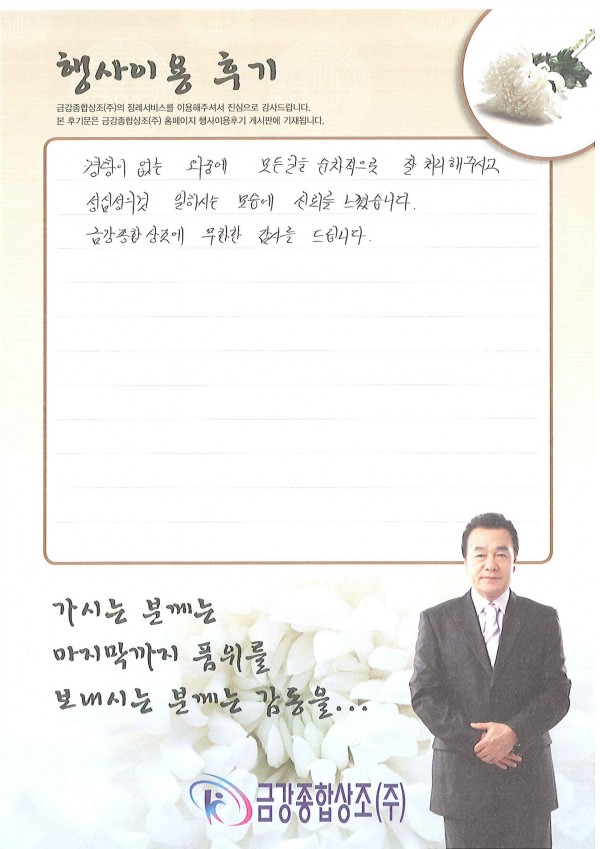 행사이용 후기
금강종합상조(주)의 장례서비스를 이용해주셔서 진심으로 감사드립니다.
본 후기문은 금강종합상조(주) 홈페이지 행사이용후기 게시판에 기재됩니다.
경황이 없는 와중에 모든일을 순차적으로 잘 처리해주시고
성심성의껏 일하시는 모습에 신뢰를 느꼈습니다.
금강종합상조에 무한한 감사를 드립니다.
가시는 분께는
마지막까지 품위를
보내시는 분께는 감동을...
금강종합상조(주)